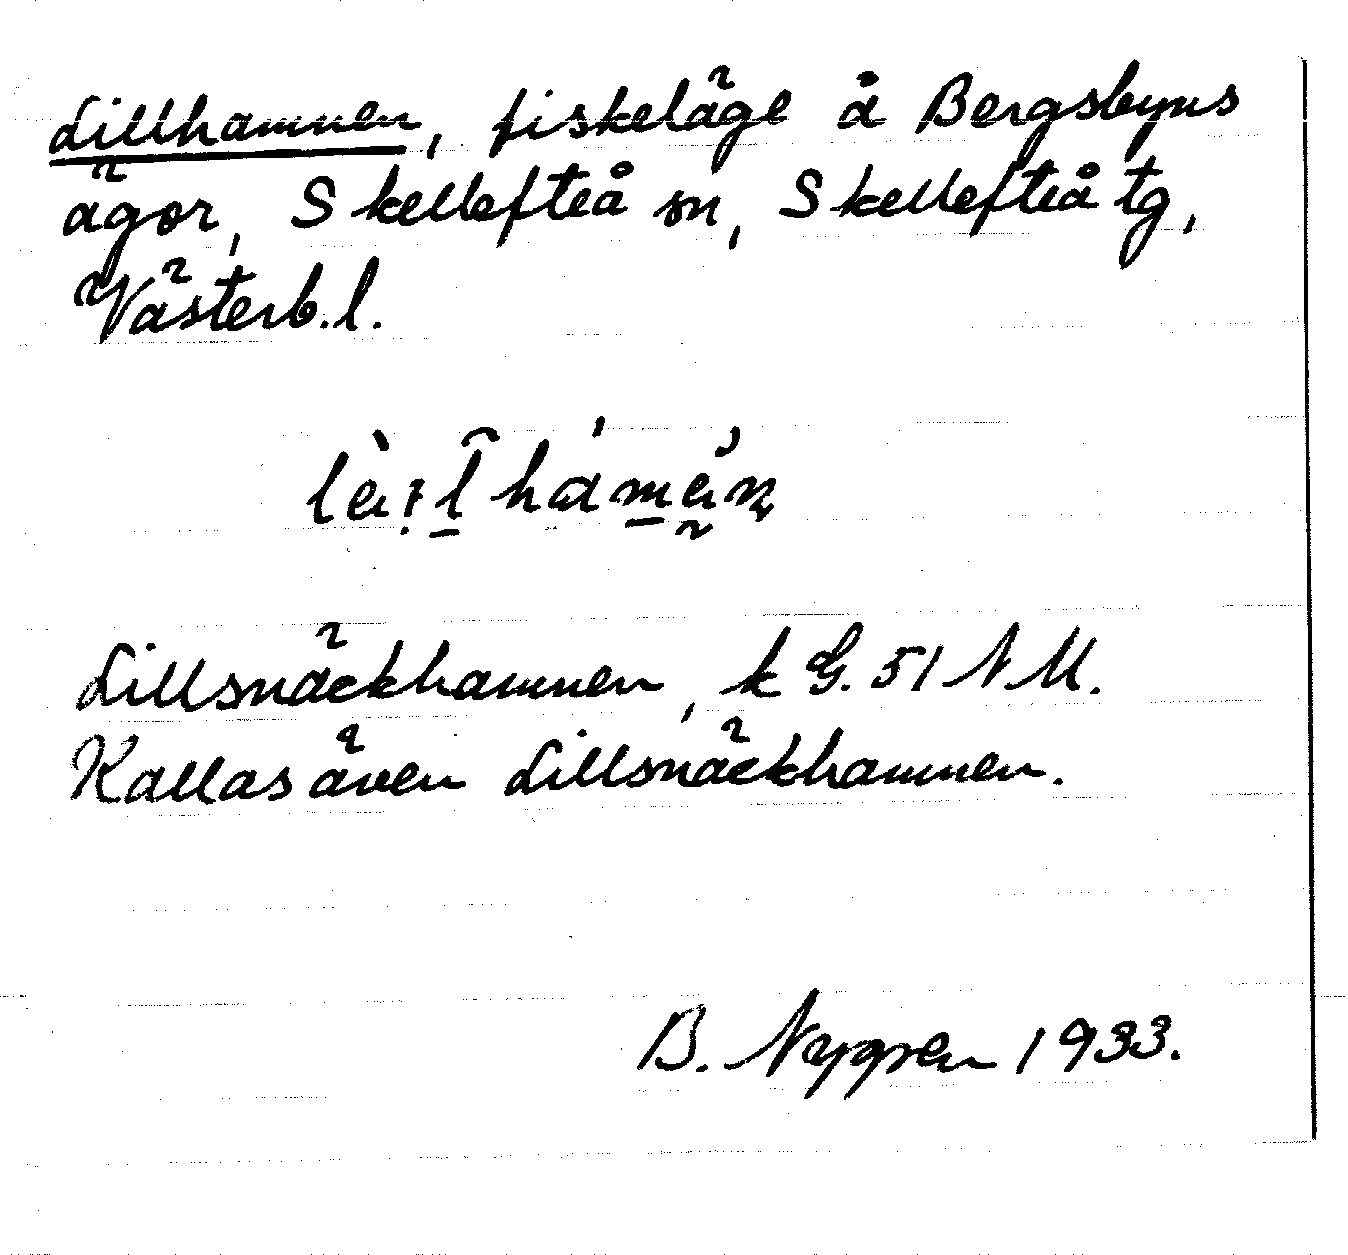 Lillhamnen, fiskeläge å Bergsbyns
ägor, Skellefteå sn, Skellefteå tg,
Västerb.l.
Lillsnäckhamnen, k G. 51 NM.
Kallas även Lillsnäckhamnen.
B. Nygren 1933.